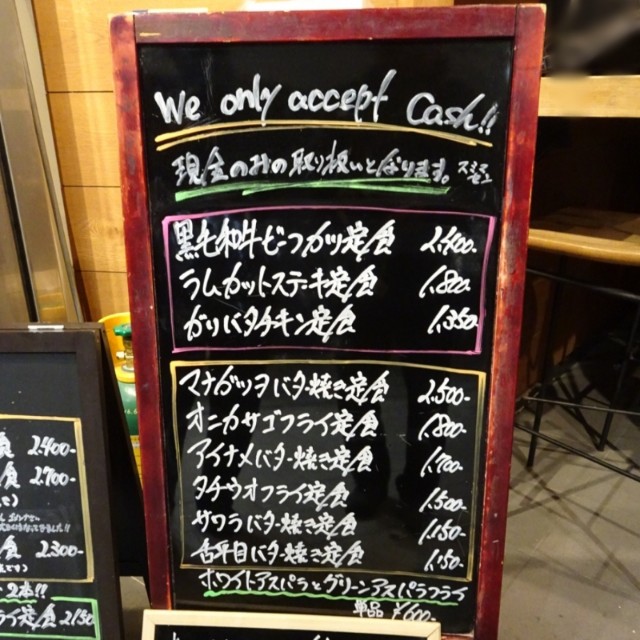 We only accept Cash!!
現金のみの取り扱いとなります。スミマセン
黒毛和牛ビーフカツ定食 2.400-
ラムカットステーキ定食 1.800-
ガリバタチキン定食 1.350-
マナガツヲバター焼き定食 2.500-
オニカサゴフライ定食 1.800-
アイナメバター焼き定食 1.700-
タチウオフライ定食 1.500-
サワラバター焼き定食 1.150-
舌平目バター焼き定食 1.150-
ホワイトアスパラとグリーンアスパラフライ
単品 ¥600-
食 2.400-
食 2.700-
食 2.300-
2本!!
ライ定食 2150